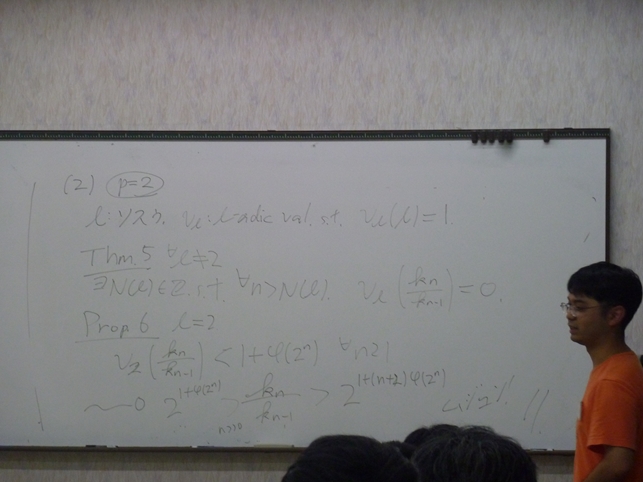 (2) p=2
l:ソスウ. v_l: l-adic val. s.t. v_l(l)=1.
Thm.5 ∀l≠2
∃N(l)∈Z s.t. ∀n>N(l). v_l(k_n/k_{n-1})=0.
Prop 6 l=2
v_2(k_n/k_{n-1}) < 1+φ(2^n) ∀n≥1
2^{1+φ(2^n)} > k_n/k_{n-1} > 2^{1+(n+2)φ(2^n)}
n>>0